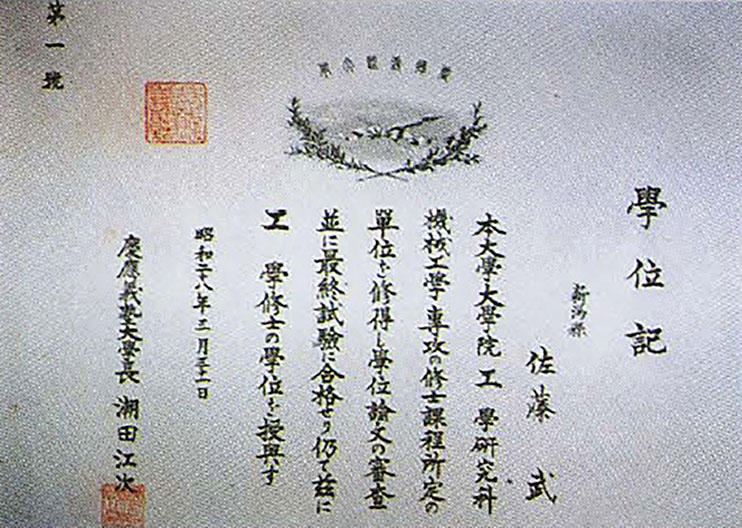 學位記
新潟縣
佐藤 武
本大學大學院工學研究科
機械工學專攻の修士課程所定の
單位を修得し學位論文の審査
並に最終試驗に合格せり仍て茲に
工學修士の學位を授與す
昭和二十八年三月三十一日
慶應義塾大學長 潮田江次
第一號